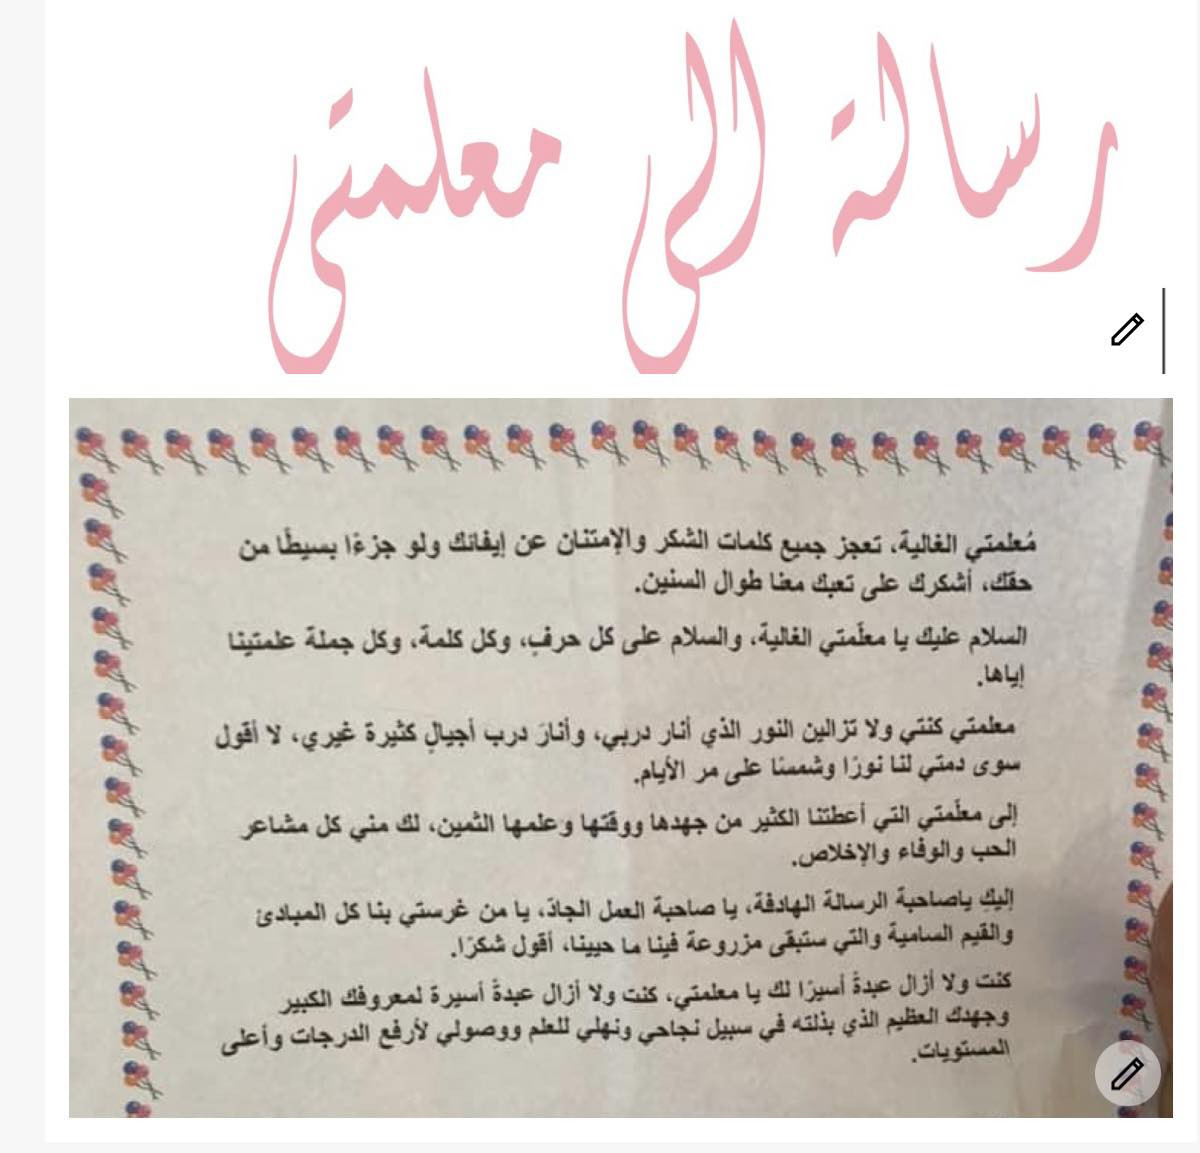 رسالة الى معلمتي
مُعلمتي الغالية، تعجز جميع كلمات الشكر والإمتنان عن إيفائك ولو جزءًا بسيطًا من
حقك، أشكرك على تعبك معنا طوال السنين.
السلام عليك يا معلّمتي الغالية، والسلام على كل حرفٍ، وكل كلمة، وكل جملة علمتينا
إياها.
معلمتي كنتي ولا تزالين النور الذي أنار دربي، وأنارَ درب أجيالٍ كثيرة غيري، لا أقول
سوى دمتي لنا نورًا وشمسًا على مر الأيام.
إلى معلّمتي التي أعطتنا الكثير من جهدها ووقتها وعلمها الثمين، لك مني كل مشاعر
الحب والوفاء والإخلاص.
إليكِ ياصاحبة الرسالة الهادفة، يا صاحبة العمل الجادّ، يا من غرستي بنا كل المبادئ
والقيم السامية والتي ستبقى مزروعة فينا ما حيينا، أقول شكرًا.
كنت ولا أزال عبدةً أسيرًا لك يا معلمتي، كنت ولا أزال عبدةً أسيرة لمعروفك الكبير
وجهدك العظيم الذي بذلته في سبيل نجاحي ونهلي للعلم ووصولي لأرفع الدرجات وأعلى
المستويات.